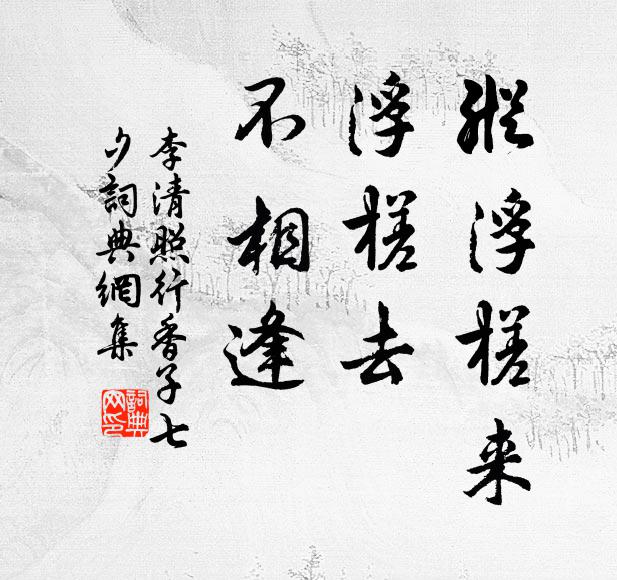 縱浮槎来
浮槎去
不相逢
李清照行香子七
夕詞典網集
詞典網印